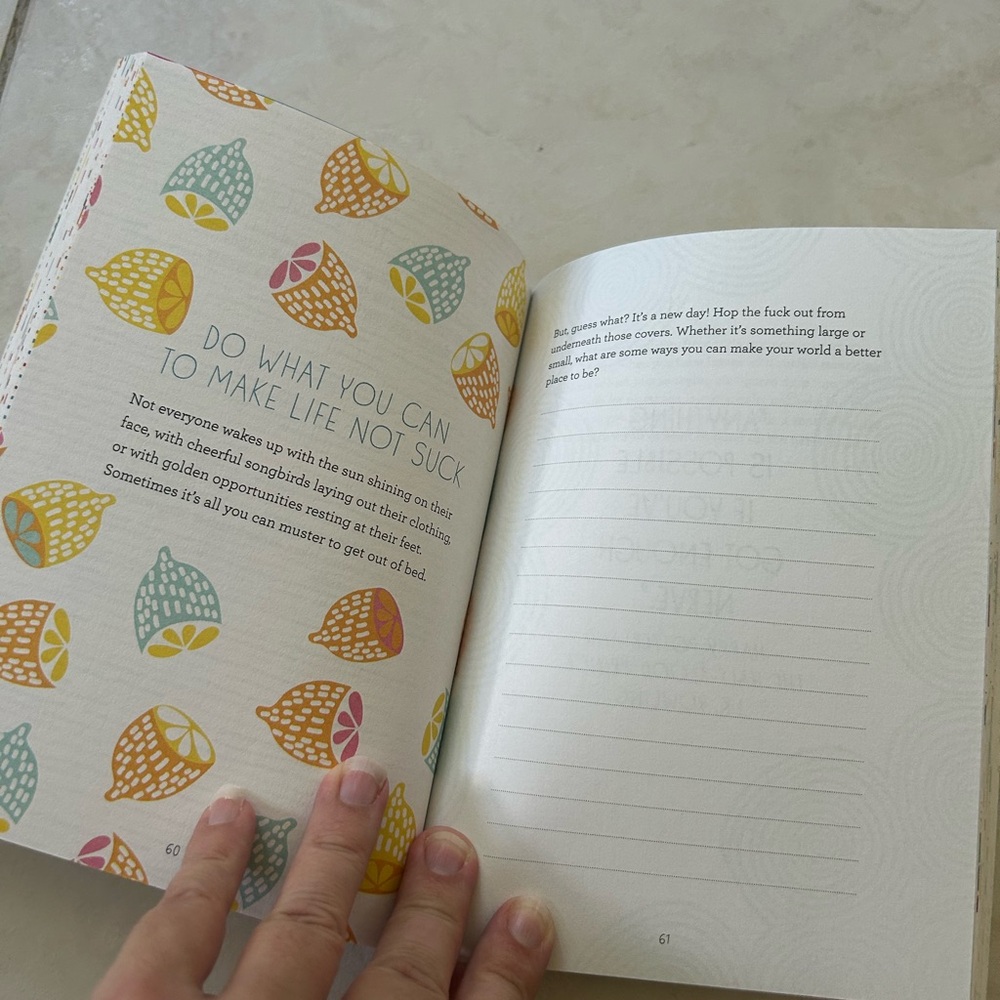 DO WHAT YOU CAN
TO MAKE LIFE NOT SUCK
Not everyone wakes up with the sun shining on their
face, with cheerful songbirds laying out their clothing,
or with golden opportunities resting at their feet.
Sometimes it's all you can muster to get out of bed.
60
But, guess what? It's a new day! Hop the fuck out from
underneath those covers. Whether it's something large or
small, what are some ways you can make your world a better
place to be?
61